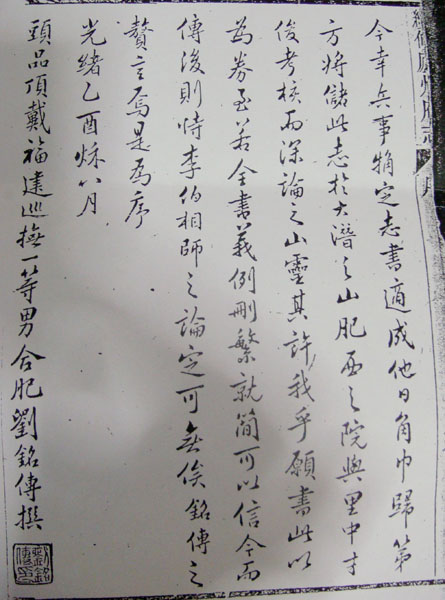 續修廬州府志
今幸兵事犄定志書適成他日角巾歸第
方將儲此志於大潛之山肥西之院與里中才
俊考核而深論之山靈其許我乎願書此以
為券至若全書義例刪繁就簡可以信今而
傳後則恃李伯相師之論定可無俟銘傳之
贅言焉是為序
光緒乙酉秌八月
頭品頂戴福建巡撫一等男合肥劉銘傳撰